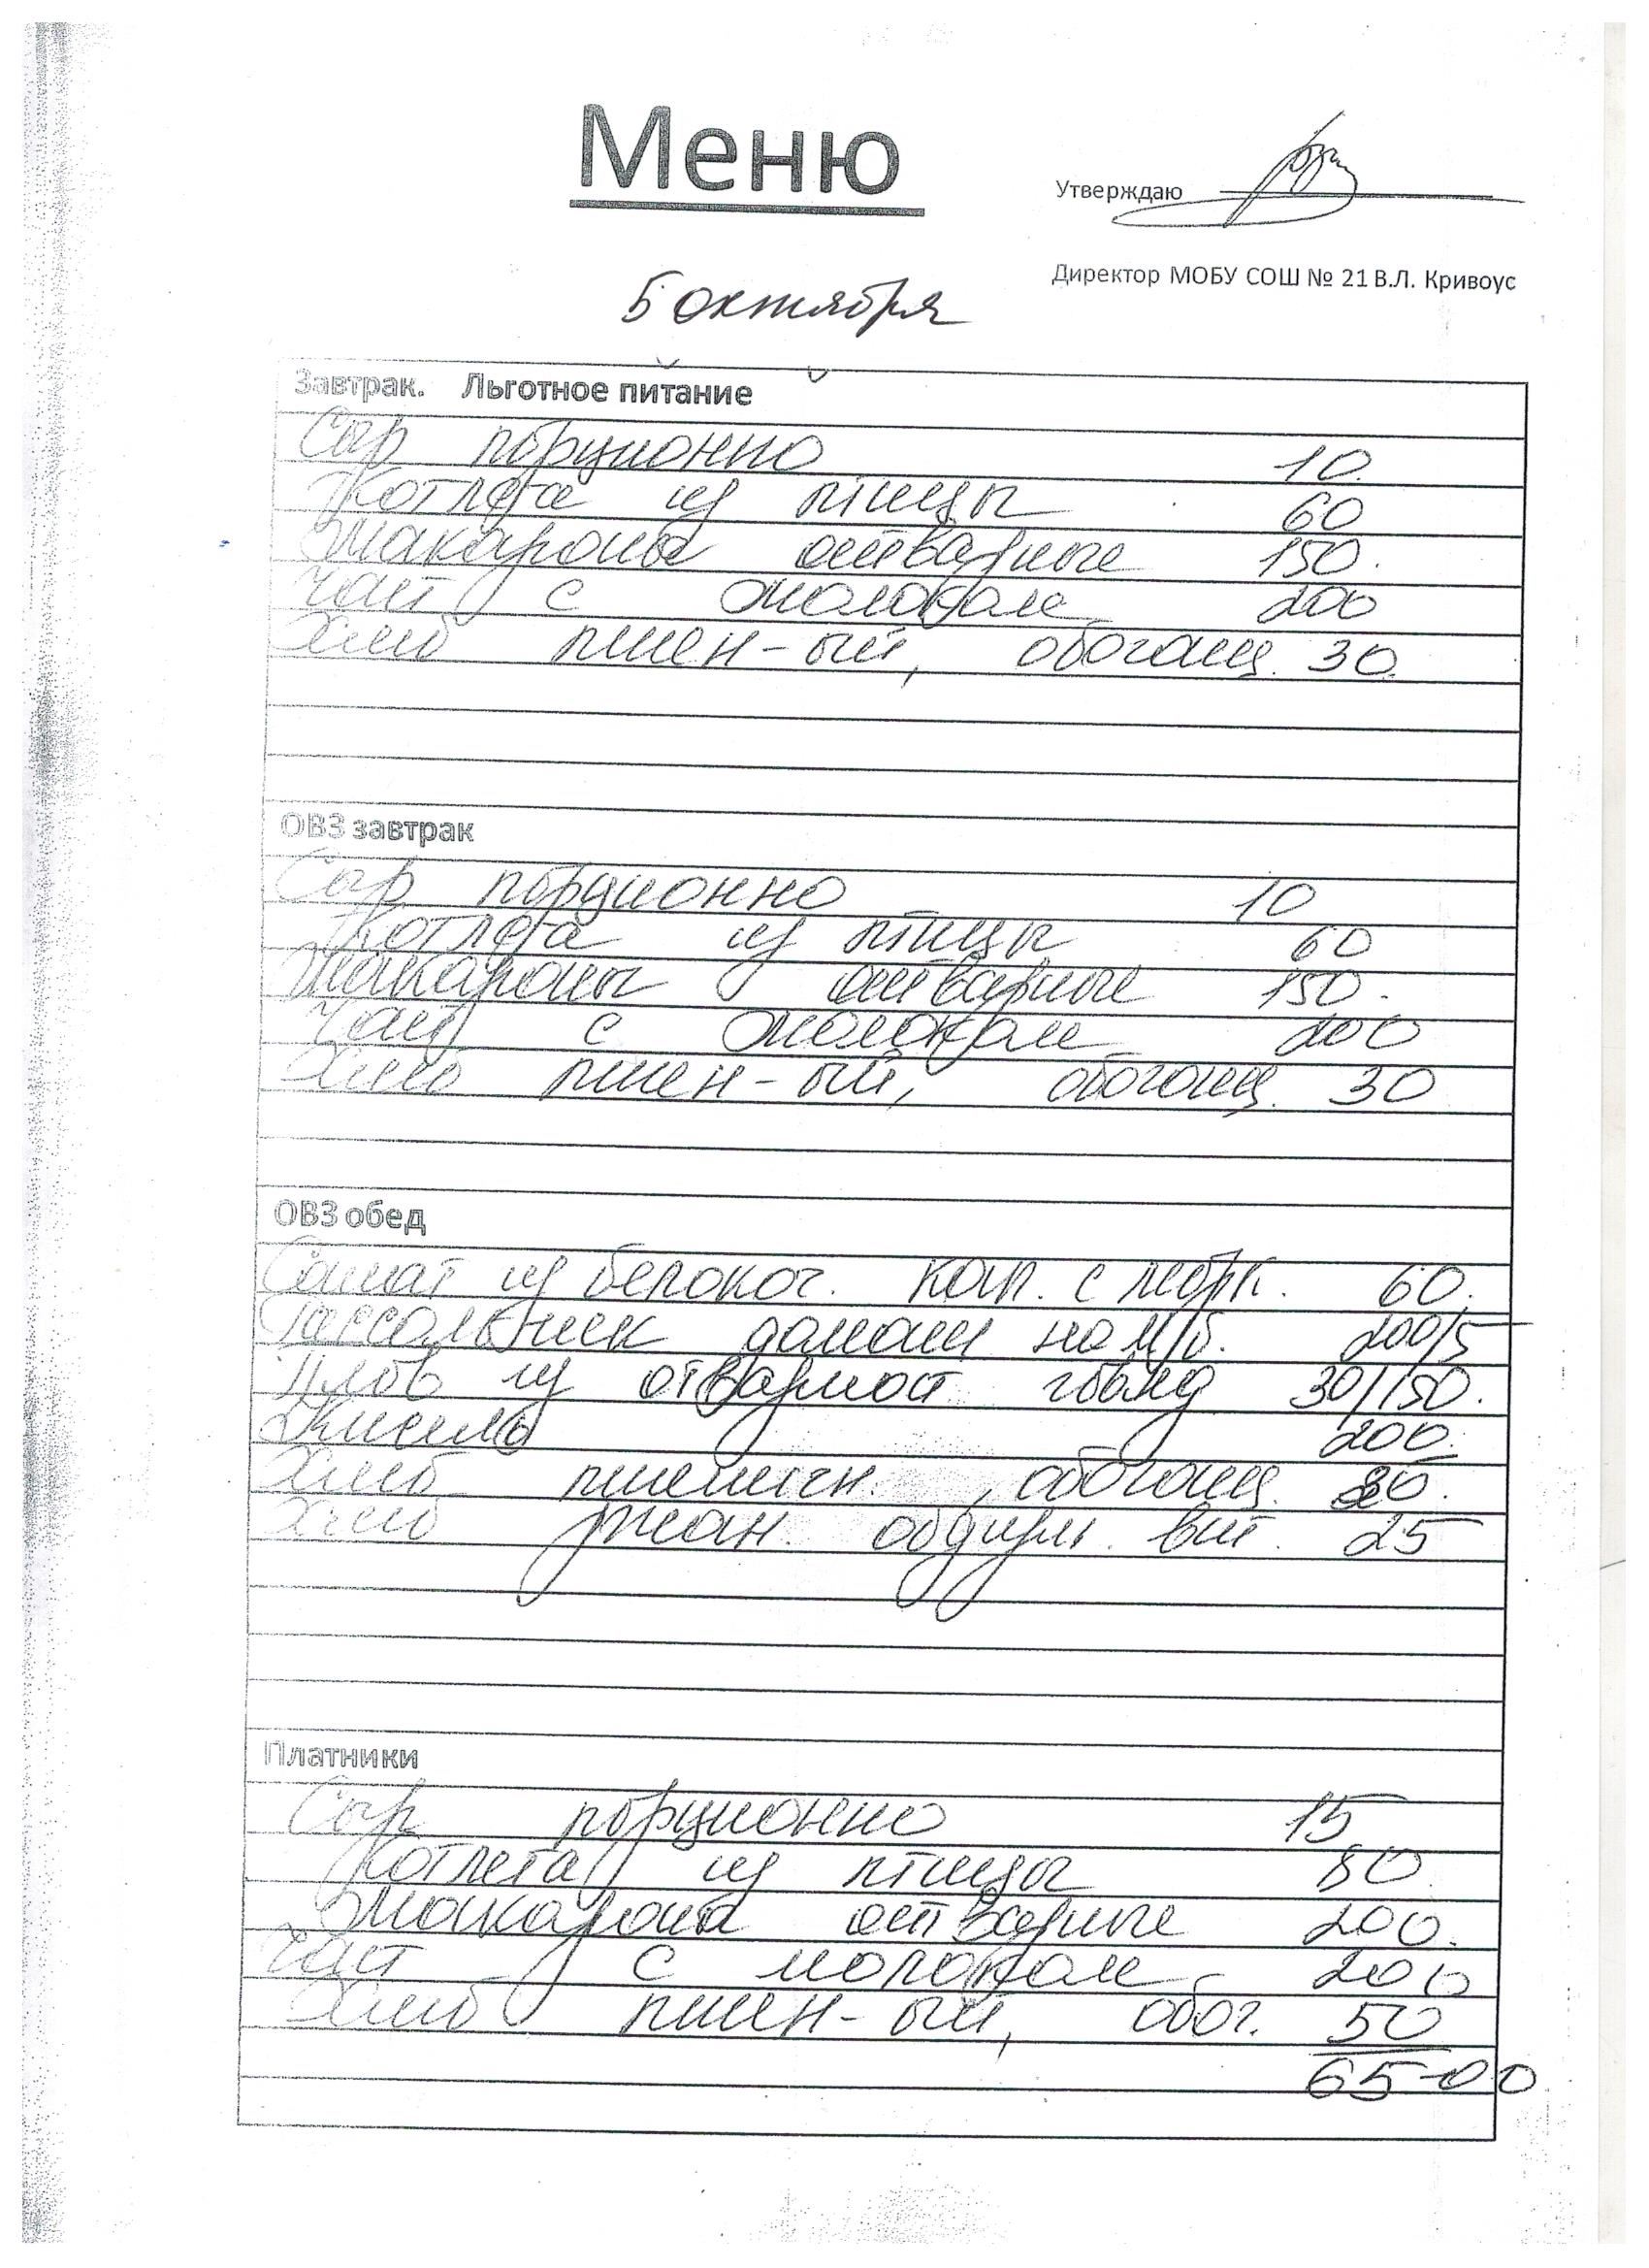 Меню
Утверждаю
Директор МОБУ СОШ № 21 В.Л. Кривоус
5 октября
Завтрак. Льготное питание
Сыр порционно 10.
Котлета из птицы 60
Макароны отварные 150.
Чай с молоком 200
Хлеб пшен-ый, обогащ. 30.
ОВЗ завтрак
Сыр порционно 10
Котлета из птицы 60
Макароны отварные 150.
Чай с молоком 200
Хлеб пшен-ый, обогащ. 30
ОВЗ обед
Салат из белокоч. кап. с морк. 60.
Рассольник домаш на м/б. 200/5
Плов из отварной говяд 30/150.
Кисель 200.
Хлеб пшеничн. , обогащ. 30.
Хлеб ржан. обдирн. вит. 25
Платники
Сыр порционно 15
Котлета из птицы 80.
Макароны отварные 200.
Чай с молоком 200
Хлеб пшен-ый, обог. 50
65-00